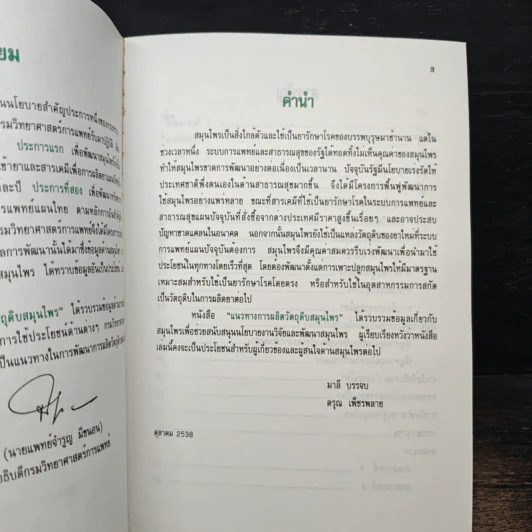 ยม
นนโยบายสำคัญประการหนึ่งของ
รมวิทยาศาสตร์การแพทย์รับมา
ประการแรก เพื่อพัฒนาสมุนไพร
เข้ายาและสารเคมีเพื่อการผลิตยา
ละปี ประการที่สอง เพื่อพัฒนา
ารแพทย์แผนไทย ตามหลักการ
รมวิทยาศาสตร์การแพทย์จึงได้
ลการพัฒนานั้นได้มาซึ่งข้อมูลด้าน
สมุนไพร ได้ทราบข้อมูลอันเป็นประโยชน์
ตถุดิบสมุนไพร" ได้รวบรวมข้อมูล
การใช้ประโยชน์ด้านต่างๆ
ป็นแนวทางในการพัฒนาการผลิตวัตถุดิบ
(นายแพทย์จำรูญ มีขนอน)
อธิบดีกรมวิทยาศาสตร์การแพทย์
คำนำ
สมุนไพรเป็นสิ่งใกล้ตัวและใช้เป็นยารักษาโรคของบรรพบุรุษมาช้านาน แต่ใน
ช่วงเวลาหนึ่ง ระบบการแพทย์และสาธารณสุขของรัฐได้ทอดทิ้งไม่เห็นคุณค่าของสมุนไพร
ทำให้สมุนไพรขาดการพัฒนาอย่างต่อเนื่องเป็นเวลานาน ปัจจุบันรัฐมีนโยบายเร่งรัดให้
ประเทศชาติพึ่งตนเองในด้านสาธารณสุขมากขึ้น จึงได้มีโครงการฟื้นฟูพัฒนาการ
ใช้สมุนไพรอย่างแพร่หลาย ขณะที่สารเคมีที่ใช้เป็นยารักษาโรคในระบบการแพทย์และ
สาธารณสุขแผนปัจจุบันที่สั่งซื้อจากต่างประเทศมีราคาสูงขึ้นเรื่อยๆ และอาจประสบ
ปัญหาขาดแคลนในอนาคต นอกจากนั้นสมุนไพรยังใช้เป็นแหล่งวัตถุดิบของยาใหม่ที่ระบบ
การแพทย์แผนปัจจุบันต้องการ สมุนไพรจึงมีคุณค่าสมควรรีบเร่งพัฒนาเพื่อนำมาใช้
ประโยชน์ในทุกทางโดยเร็วที่สุด โดยต้องพัฒนาตั้งแต่การเพาะปลูกสมุนไพรให้มีมาตรฐาน
เหมาะสมสำหรับใช้เป็นยารักษาโรคโดยตรง หรือสำหรับใช้ในอุตสาหกรรมการสกัด
เป็นวัตถุดิบในการผลิตยาต่อไป
หนังสือ "แนวทางการผลิตวัตถุดิบสมุนไพร" ได้รวบรวมข้อมูลเกี่ยวกับ
สมุนไพรเพื่อช่วยสนับสนุนนโยบายงานวิจัยและพัฒนาสมุนไพร ผู้เรียบเรียงหวังว่าหนังสือ
เล่มนี้คงจะเป็นประโยชน์สำหรับผู้เกี่ยวข้องและผู้สนใจด้านสมุนไพรต่อไป
มาลี บรรจบ
ดรุณ เพ็ชรพลาย
ตุลาคม 2538